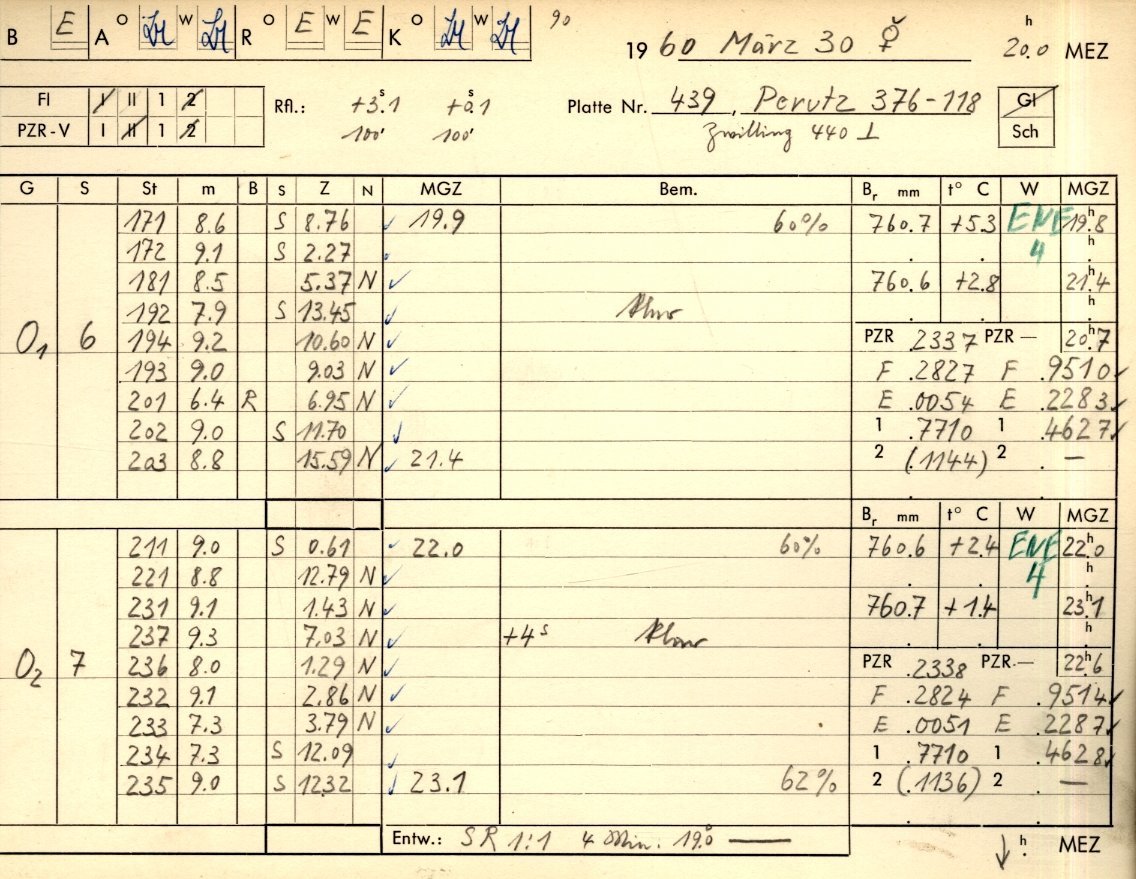 B E A O W R O E W E K O W 90
1960 März 30 ☿ 20.0 h MEZ
Fl I II 1 2 Rfl.: +3.1 s +0.1 s Platte Nr. 439, Perutz 376-118 Gl
PZR-V I II 1 2 100' 100' Zwilling 440 ⊥ Sch
G S St m B S Z N MGZ Bem. Br mm t° C W MGZ
171 8.6 S 8.76 ✓ 19.9 60% 760.7 +5.3 ENE 19.8 h
172 9.1 S 2.27 4 h
181 8.5 5.37 N ✓ 760.6 +2.8 21.4 h
192 7.9 S 13.45 ✓ h
O1 6 194 9.2 10.60 N ✓ PZR .2337 PZR — 20.7 h
193 9.0 9.03 N ✓ F .2827 F .9510 ✓
201 6.4 R 6.95 N ✓ E .0054 E .2283 ✓
202 9.0 S 11.70 ✓ 1 .7710 1 .4627 ✓
203 8.8 15.59 N ✓ 21.4 2 (.1144) 2 . —
Br mm t° C W MGZ
211 9.0 S 0.61 ✓ 22.0 60% 760.6 +2.4 ENE 22.0 h
221 8.8 12.79 N ✓ 4 h
231 9.1 1.43 N ✓ 760.7 +1.4 23.1 h
237 9.3 7.03 N ✓ +4 s h
O2 7 236 8.0 1.29 N ✓ PZR .2338 PZR — 22.6 h
232 9.1 2.86 N ✓ F .2824 F .9514 ✓
233 7.3 3.79 N ✓ E .0051 E .2287 ✓
234 7.3 S 12.09 ✓ 1 .7710 1 .4628 ✓
235 9.0 S 12.32 ✓ 23.1 62% 2 (.1136) 2 . —
Entw.: SR 1:1 4 Min. 19.0° — ↓ h MEZ